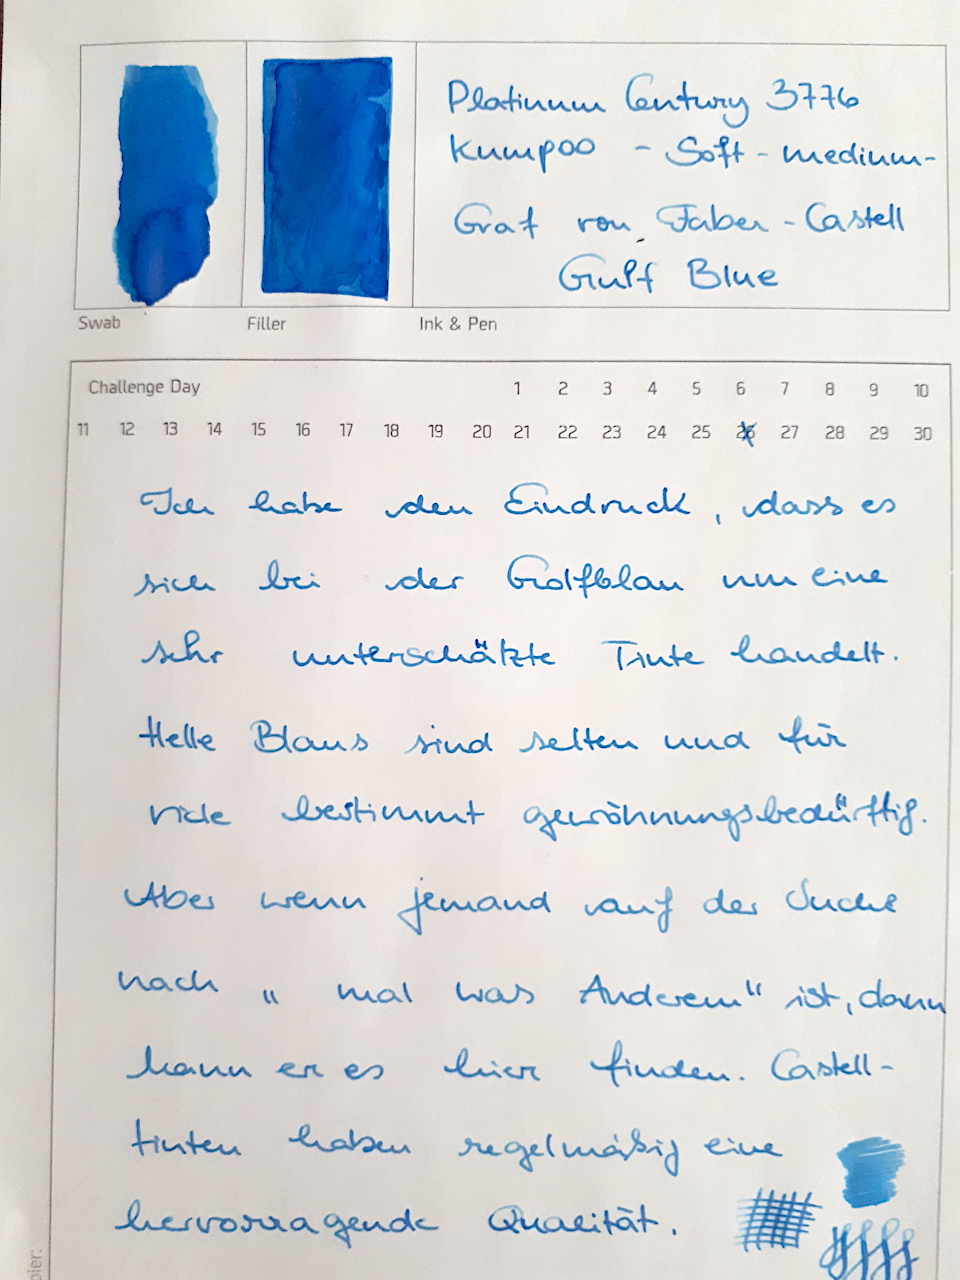 Platinum Century 3776
Kumpoo - Soft - medium-
Graf von Faber - Castell
Gulf Blue
Swab Filler Ink & Pen
Challenge Day 1 2 3 4 5 6 7 8 9 10
11 12 13 14 15 16 17 18 19 20 21 22 23 24 25 26 27 28 29 30
Ich habe den Eindruck, dass es
sich bei der Golfblau um eine
sehr unterschätzte Tinte handelt.
Helle Blaus sind selten und für
viele bestimmt gewöhnungsbedürftig.
Aber wenn jemand auf der Suche
nach „mal was Anderem" ist, dann
kann er es hier finden. Castell-
tinten haben regelmäßig eine
hervorragende Qualität.